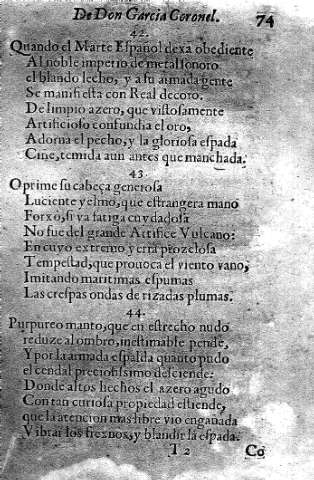 De Don Garcia Coronel. 74
42.
Quando el Marte Español dexa obediente
Al noble imperio de metal sonoro
el blando lecho, y a su armada gente
Se manifiesta con Real decoro.
De limpio azero, que vistosamente
Artificioso confundia el oro,
Adorna el pecho, y la gloriosa espada
Ciñe, temida aun antes que manchada.
43.
Oprime su cabeça generosa
Luciente yelmo, que estrangera mano
Forxò, si va fatiga cuydadosa
No fue del grande Artifice Vulcano:
En cuyo extremo yerra prozelosa
Tempestad, que prouoca el viento vano,
Imitando maritimas espumas
Las crespas ondas de rizadas plumas.
44.
Purpureo manto, que en estrecho nudo
reduze al ombro, inestimable pende,
Y por la armada espalda quanto pudo
el cendal preciosissimo desciende:
Donde altos hechos el azero agudo
Con tan curiosa propiedad estiende,
que la atencion mas libre vio engañada
Vibrar los freznos, y blandir la espada.
T 2 Co